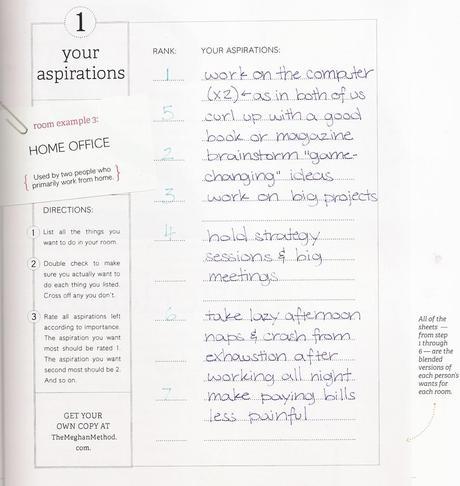 1
your
aspirations
room example 3:
HOME OFFICE
{ Used by two people who
primarily work from home. }
DIRECTIONS:
1 List all the things you
want to do in your room.
2 Double check to make
sure you actually want to
do each thing you listed.
Cross off any you don't.
3 Rate all aspirations left
according to importance.
The aspiration you want
most should be rated 1.
The aspiration you want
second most should be 2.
And so on.
GET YOUR
OWN COPY AT
TheMeghanMethod.
com.
RANK: YOUR ASPIRATIONS:
1 work on the computer
(x2) ← as in both of us
5 curl up with a good
book or magazine
2 brainstorm "game-
changing" ideas
3 work on big projects
4 hold strategy
sessions & big
meetings
6 take lazy afternoon
naps & crash from
exhaustion after
working all night
7 make paying bills
less painful
All of the
sheets —
from step
1 through
6 — are the
blended
versions of
each person's
wants for
each room.